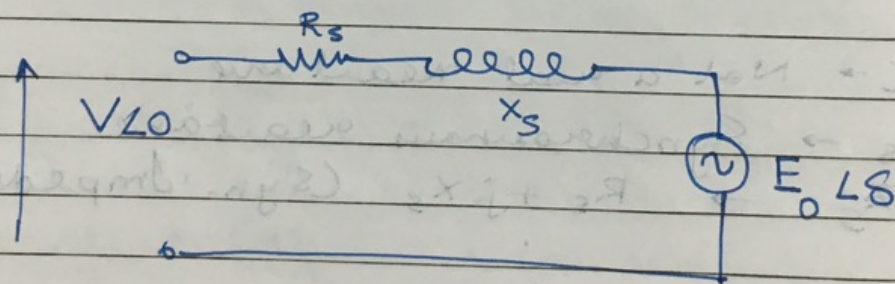 Rs
V∠0
Xs
E₀∠δ